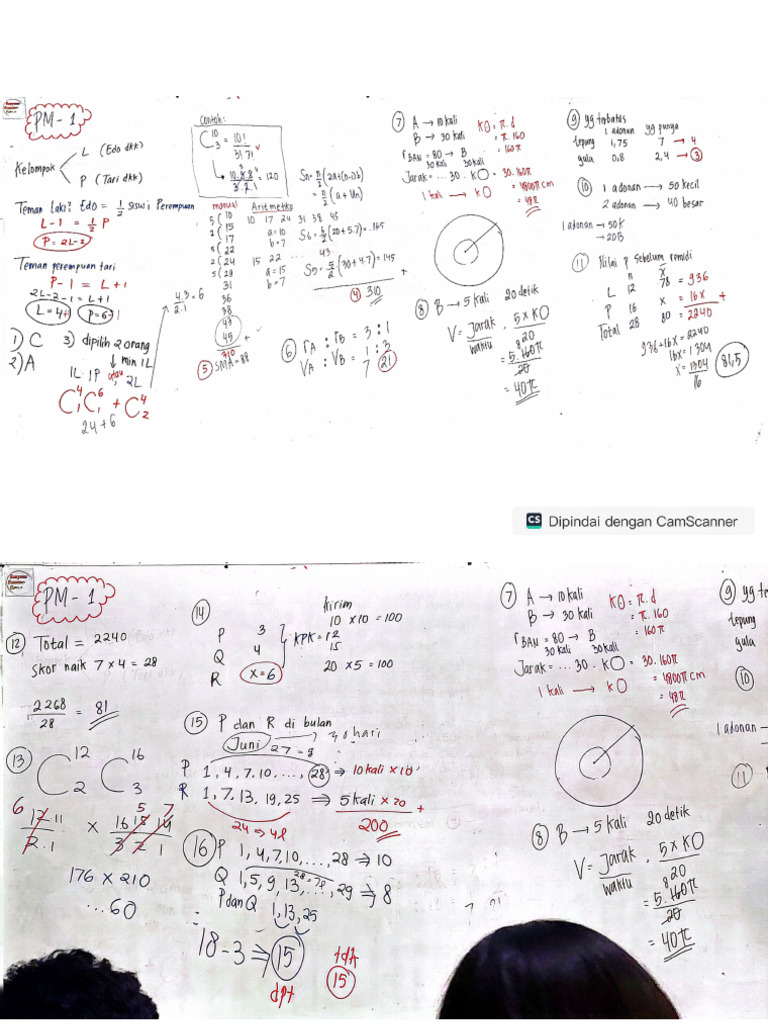 PM-1
Kelompok
L (Edo dkk)
P (Tari dkk)
Teman Laki² Edo = 1/2 siswi Perempuan
L-1 = 1/2 P
P = 2L-2
Teman perempuan tari
P-1 = L+1
2L-2-1 = L+1
L = 4
P = 6
1) C
2) A
3) dipilih 2 orang
min 1L
1L 1P atau 2L
C⁴₁ C⁶₁ + C⁴₂
24 + 6
4.3 = 6
2.1
Contoh:
C¹⁰₃ = 10!
3! 7!
10.9.8 = 120
3.2.1
manual
5 ( 10
2 ( 15
5 ( 17
3 ( 22
2 ( 24
5 ( 29
31
36
38
43
45 +
310
5 SMA = 89
Aritmetko
10 17 24 31 38 45
a = 10
b = 7
15 22 ... 43
a = 15
b = 7
Sn = n/2 (2a+(n-1)b)
= n/2 (a + Un)
S6 = 6/2 (20+5.7) = 165
S5 = 5/2 (30+4.7) = 145 +
4 310
6 rA : rB = 3 : 1
VA : VB = 1 : 3
7 21
7 A → 10 kali
B → 30 kali
rBAN = 80 → B
30 kali 30 kali
Jarak = ... 30 . KO = 30.160π
= 4800π cm
1 kali → kO = 48π
KO = π.d
= π.160
= 160π
8 B → 5 kali 20 detik
V = Jarak . 5 x KO
waktu 20
= 5.160π
20
= 40π
9 yg terbatas
1 adonan yg punya
tepung 1,75 7 → 4
gula 0,8 2,4 → 3
10 1 adonan → 50 kecil
2 adonan → 40 besar
1 adonan → 50K
→ 20B
11 Nilai P sebelum remidi
n x̄
L 12 78 = 936
P 16 x = 16x +
Total 28 80 = 2240
936+16x = 2240
16x = 1304
x = 1304
16
81,5
CS Dipindai dengan CamScanner
PM-1
12 Total = 2240
Skor naik 7 x 4 = 28
2268 = 81
28
13 C¹²₂ C¹⁶₃
6 5 7
12 11 x 16 15 14
2 . 1 3 2 1
176 x 210
...60
14
P 3
Q 4
R x = 6
KPK = 12
kirim
10 x 10 = 100
15
20 x 5 = 100
15 P dan R di bulan
Juni → 30 hari
27 = 9
P 1, 4, 7, 10, ...., 28 ⇒ 10 kali x 10
R 1, 7, 13, 19, 25 ⇒ 5 kali x 20 +
24 ⇒ 4l
200
16 P 1, 4, 7, 10, ..., 28 ⇒ 10
28 = 7l
Q 1, 5, 9, 13, ..., 29 ⇒ 8
P dan Q 1, 13, 25
18 - 3 ⇒ 15
dpt
tdk
15
7 A → 10 kali
B → 30 kali
rBAN = 80 → B
30 kali 30 kali
Jarak = ... 30 . KO = 30.160π
= 4800π cm
1 kali → kO = 48π
KO = π.d
= π.160
= 160π
8 B → 5 kali 20 detik
V = Jarak . 5 x KO
waktu 20
= 5.160π
20
= 40π
9 yg te
tepung
gula
10
1 adonan
11